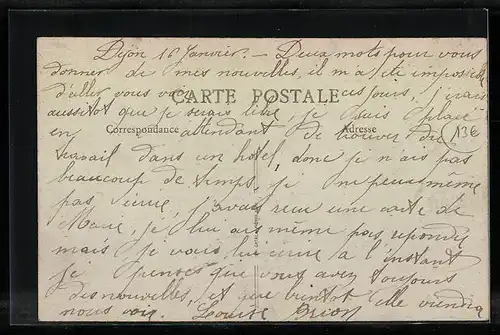 Dijon 16 Janvier. - Deux mots pour vous
donner de mes nouvelles, il m'a été impossible
d'aller vous voir ces jours, j'irais
CARTE POSTALE
aussitot que je serais libre, je suis placé
Correspondance
Adresse
en attendant de trouver du
13€
travail dans un hotel, donc je n'ais pas
beaucoup de temps, je ne peux même
pas écrire, j'avais reçu une carte de
Marie, je lui ais même pas repondu
mais je vais lui écrire à l'instant
je penses que vous avez toujours
des nouvelles, et que bientot elle viendra
nous voir. Louise